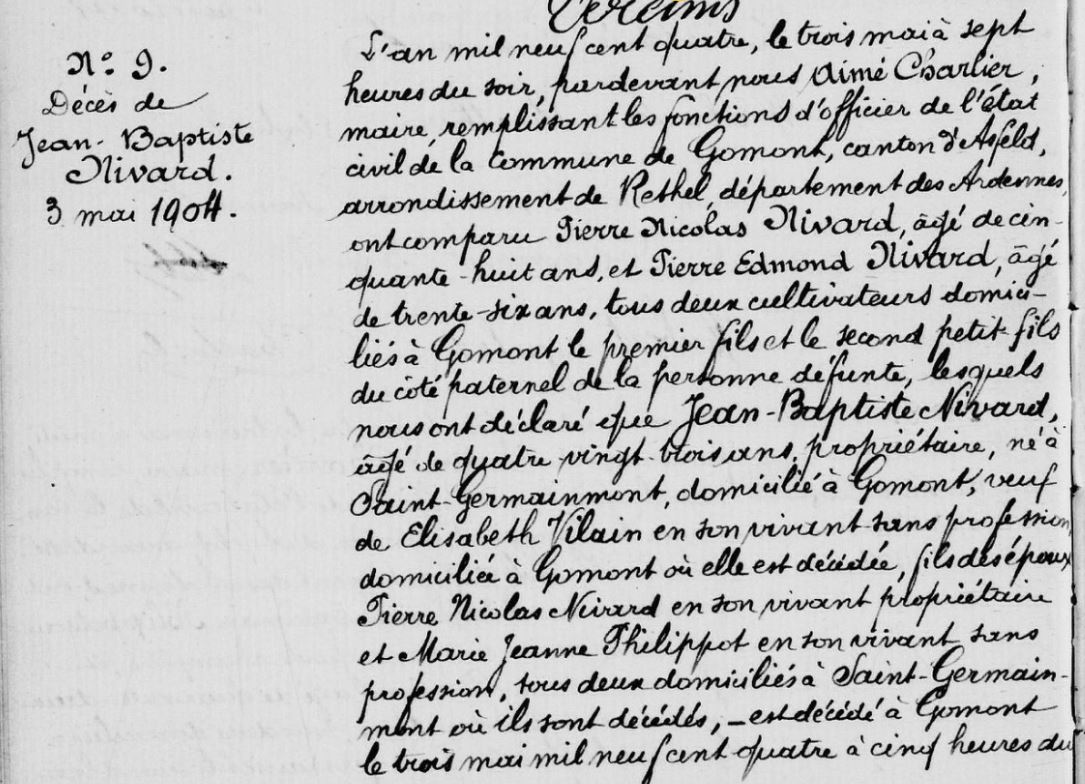 N° 9.
Décès de
Jean-Baptiste
Nivard.
3 mai 1904.
L'an mil neuf cent quatre, le trois mai à sept
heures du soir, pardevant nous Aimé Charlier,
maire, remplissant les fonctions d'officier de l'état
civil de la commune de Gomont, canton d'Asfeld,
arrondissement de Rethel, département des Ardennes,
ont comparu Pierre Nicolas Nivard, âgé de cin-
quante-huit ans, et Pierre Edmond Nivard, âgé
de trente-six ans, tous deux cultivateurs domici-
liés à Gomont le premier fils et le second petit-fils
du côté paternel de la personne défunte, lesquels
nous ont déclaré que Jean-Baptiste Nivard,
âgé de quatre vingt-trois ans, propriétaire, né à
Saint-Germainmont, domicilié à Gomont, veuf
de Elisabeth Vilain en son vivant sans profession
domiciliée à Gomont où elle est décédée, fils des époux
Pierre Nicolas Nivard en son vivant propriétaire
et Marie Jeanne Philippot en son vivant sans
profession, tous deux domiciliés à Saint-Germain-
mont où ils sont décédés, – est décédé à Gomont
le trois mai mil neuf cent quatre à cinq heures du